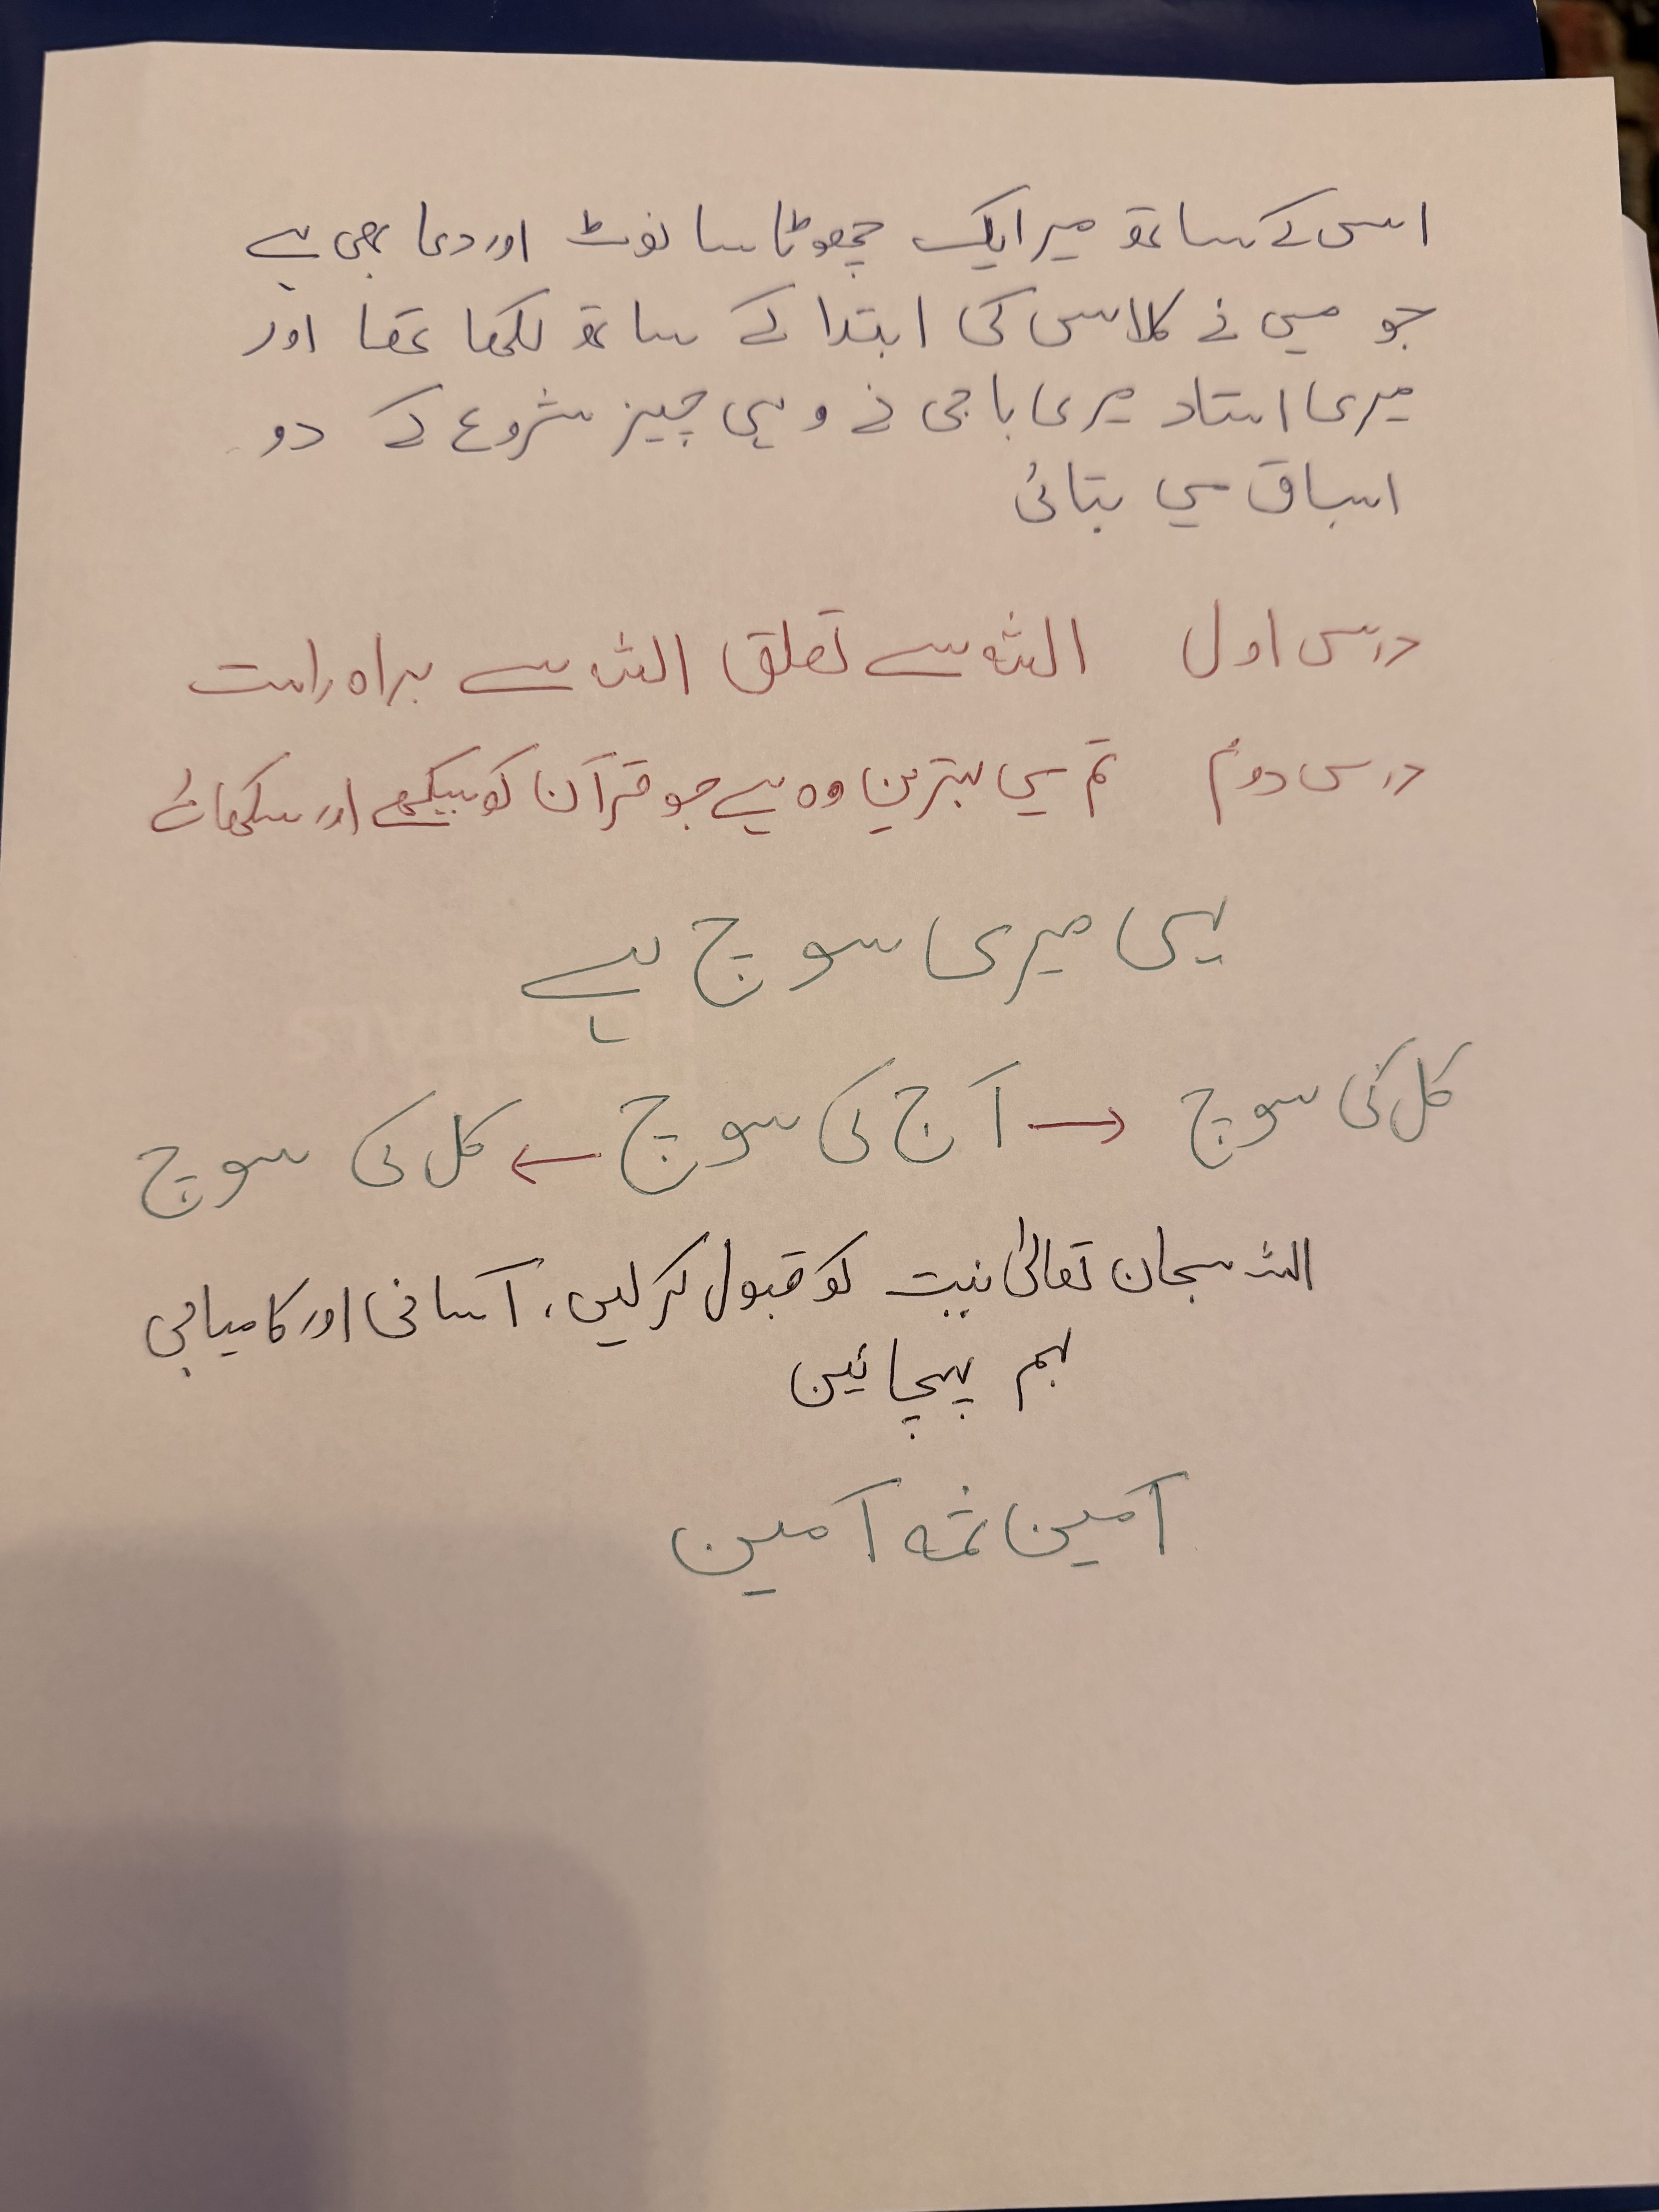 اس کے ساتھ میرا ایک چھوٹا سا نوٹ اور دعا بھی ہے
جو میں نے کلاس کی ابتدا کے ساتھ لکھا تھا اور
میری استاد میری باجی نے وہی چیز شروع کے دو
اسباق میں بتائی
درس اول اللہ سے تعلق اللہ سے براہ راست
درس دوم تم میں بہترین وہ ہے جو قرآن کو سیکھے اور سکھائے
یہی میری سوچ ہے
کل کی سوچ → آج کی سوچ ← کل کی سوچ
اللہ سبحان تعالیٰ نیت کو قبول کر لیں، آسانی اور کامیابی
بہم پہچائین
آمین ثمہ آمین